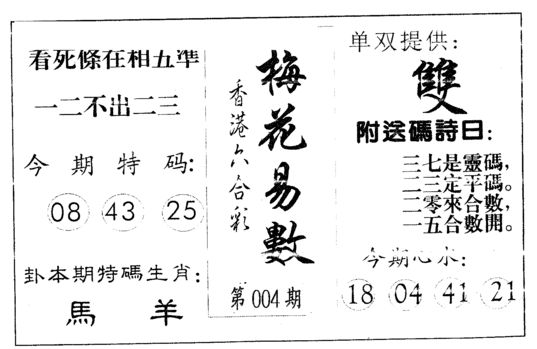 看死條在相五準
一二不出二三
今期特码:
08 43 25
卦本期特碼生肖:
馬 羊
梅花易數
香港六合彩
第004期
单双提供:
雙
附送碼詩曰:
三七是靈碼,
二三定平碼。
二零來合數,
一五合數開。
今期心水:
18 04 41 21